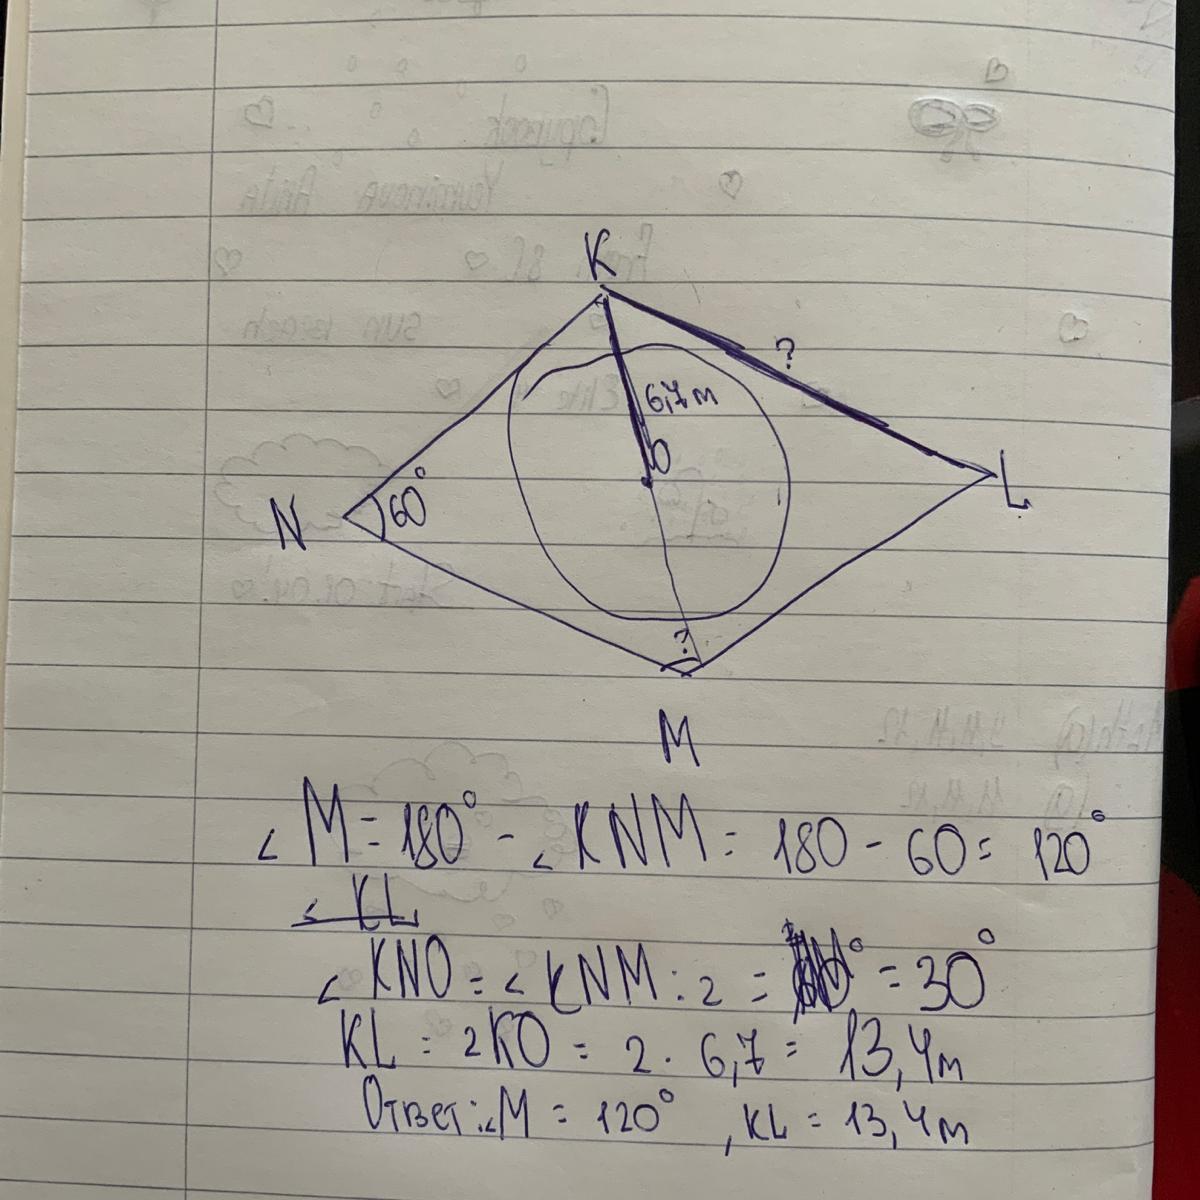 K
?
6,7м
O
N
60°
L
?
M
∠M = 180° - ∠KNM = 180 - 60 = 120°
∠KL
∠KNO = ∠KNM : 2 = ° = 30°
KL = 2KO = 2 · 6,7 = 13,4м
Ответ: ∠M = 120°, KL = 13,4м